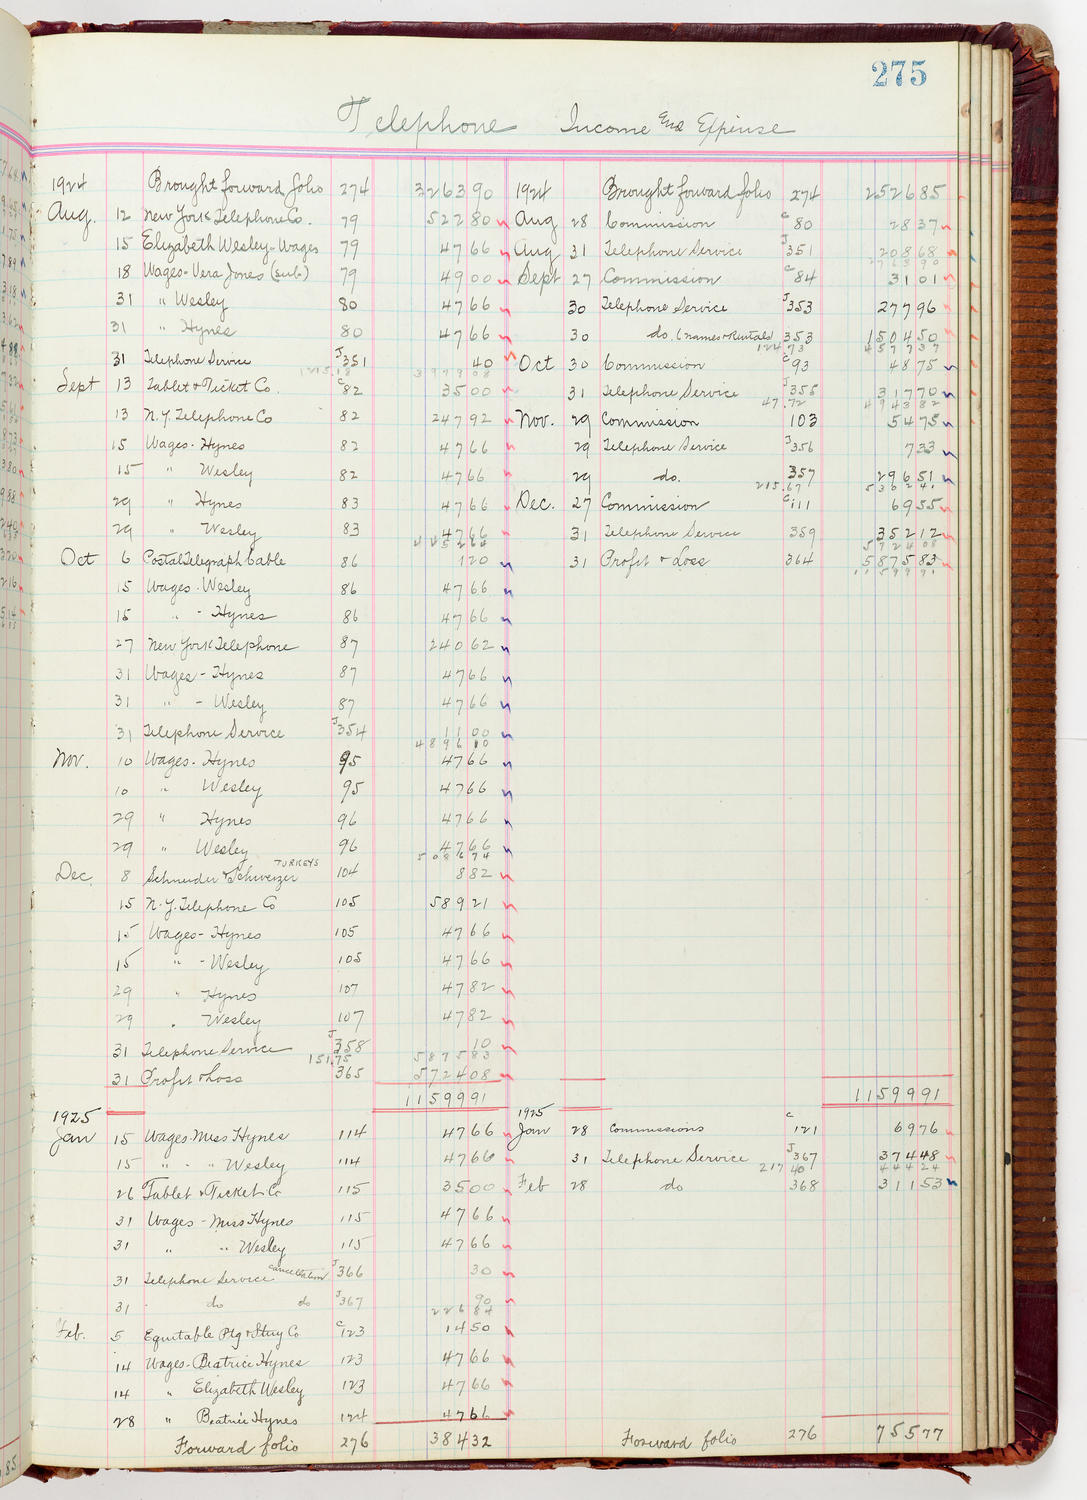 275
Telephone Income and Expense
1924 Brought forward folio 274 3263 90
Aug. 12 New York Telephone Co. 79 522 80
15 Elizabeth Wesley-Wages 79 47 66
18 Wages-Vera Jones (sub) 79 49 00
31 " Wesley 80 47 66
31 " Hynes 80 47 66
31 Telephone Service J351 40
3979 08
Sept 13 Tablet & Ticket Co. C82 35 00
13 N.Y. Telephone Co 82 247 92
15 Wages-Hynes 82 47 66
15 " Wesley 82 47 66
29 " Hynes 83 47 66
29 " Wesley 83 47 66
Oct 6 Postal Telegraph Cable 86 1 20
15 Wages-Wesley 86 47 66
15 " - Hynes 86 47 66
27 New York Telephone 87 240 62
31 Wages-Hynes 87 47 66
31 " - Wesley 87 47 66
31 Telephone Service J354 11 00
4896 10
Nov. 10 Wages-Hynes 95 47 66
10 " Wesley 95 47 66
29 " Hynes 96 47 66
29 " Wesley 96 47 66
5086 74
TURKEYS
Dec. 8 Schneider & Schweizer 104 8 82
15 N.Y. Telephone Co 105 589 21
15 Wages-Hynes 105 47 66
15 " - Wesley 105 47 66
29 " Hynes 107 47 82
29 " Wesley 107 47 82
31 Telephone Service J358 10
151.75 5875 83
31 Profit & Loss 365 5724 08
11599 91
1925
Jan 15 Wages-Miss Hynes 114 47 66
15 " - " Wesley 114 47 66
26 Tablet & Ticket Co 115 35 00
31 Wages-Miss Hynes 115 47 66
31 " " Wesley 115 47 66
31 Telephone Service cancellation J366 30
31 do do J367 90
226 84
Feb. 5 Equitable Ptg & Stny Co C123 14 50
14 Wages-Beatrice Hynes 123 47 66
14 " Elizabeth Wesley 123 47 66
28 " Beatrice Hynes 124 47 66
Forward folio 276 384 32
1924 Brought forward folio 274 2526 85
Aug 28 Commission C80 28 37
Aug 31 Telephone Service J351 208 68
Sept 27 Commission C84 31 01
30 Telephone Service J353 277 96
30 do. (names & Rentals) 353 1504 50
124.73 4577 37
Oct 30 Commission C93 48 75
31 Telephone Service J355 317 70
47.72 4943 82
Nov. 29 Commission 103 54 75
29 Telephone Service J356 7 33
29 do. 357 296 51
215.67 5302 41
Dec. 27 Commission C111 69 55
31 Telephone Service 359 352 12
5724 08
31 Profit & Loss 364 5875 83
11599 91
11599 91
1925
Jan 28 Commissions C121 69 76
31 Telephone Service J367 374 48
217 40 444 24
Feb 28 do 368 311 53
Forward folio 276 755 77